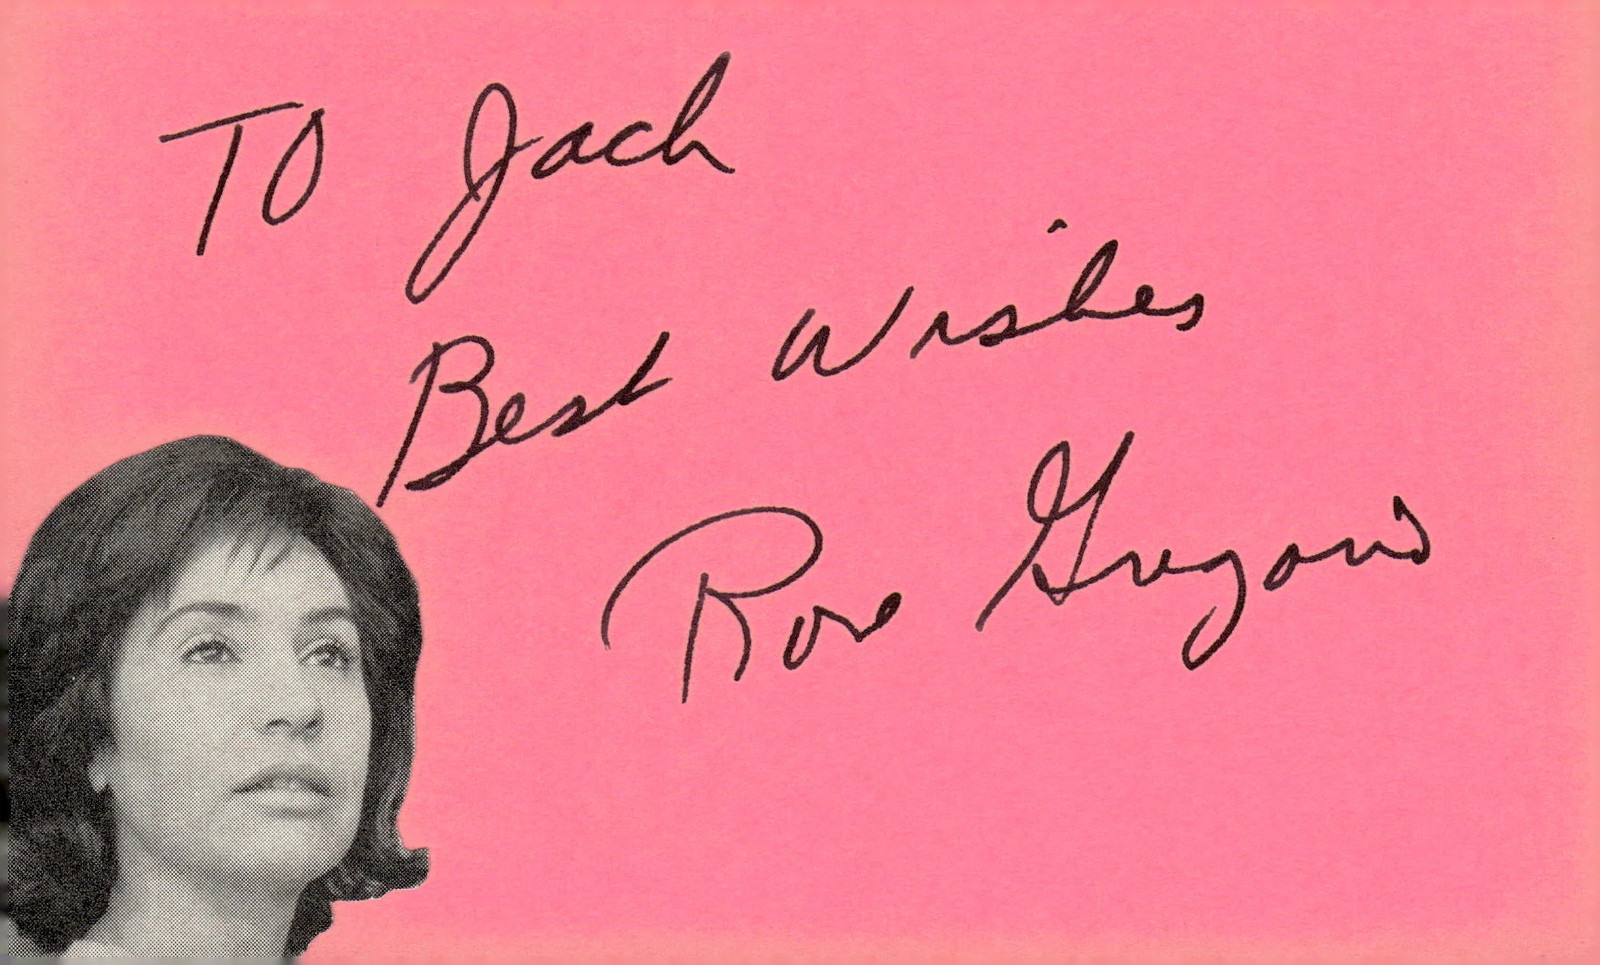 TO Jack
Best Wishes
Rose Gregorio